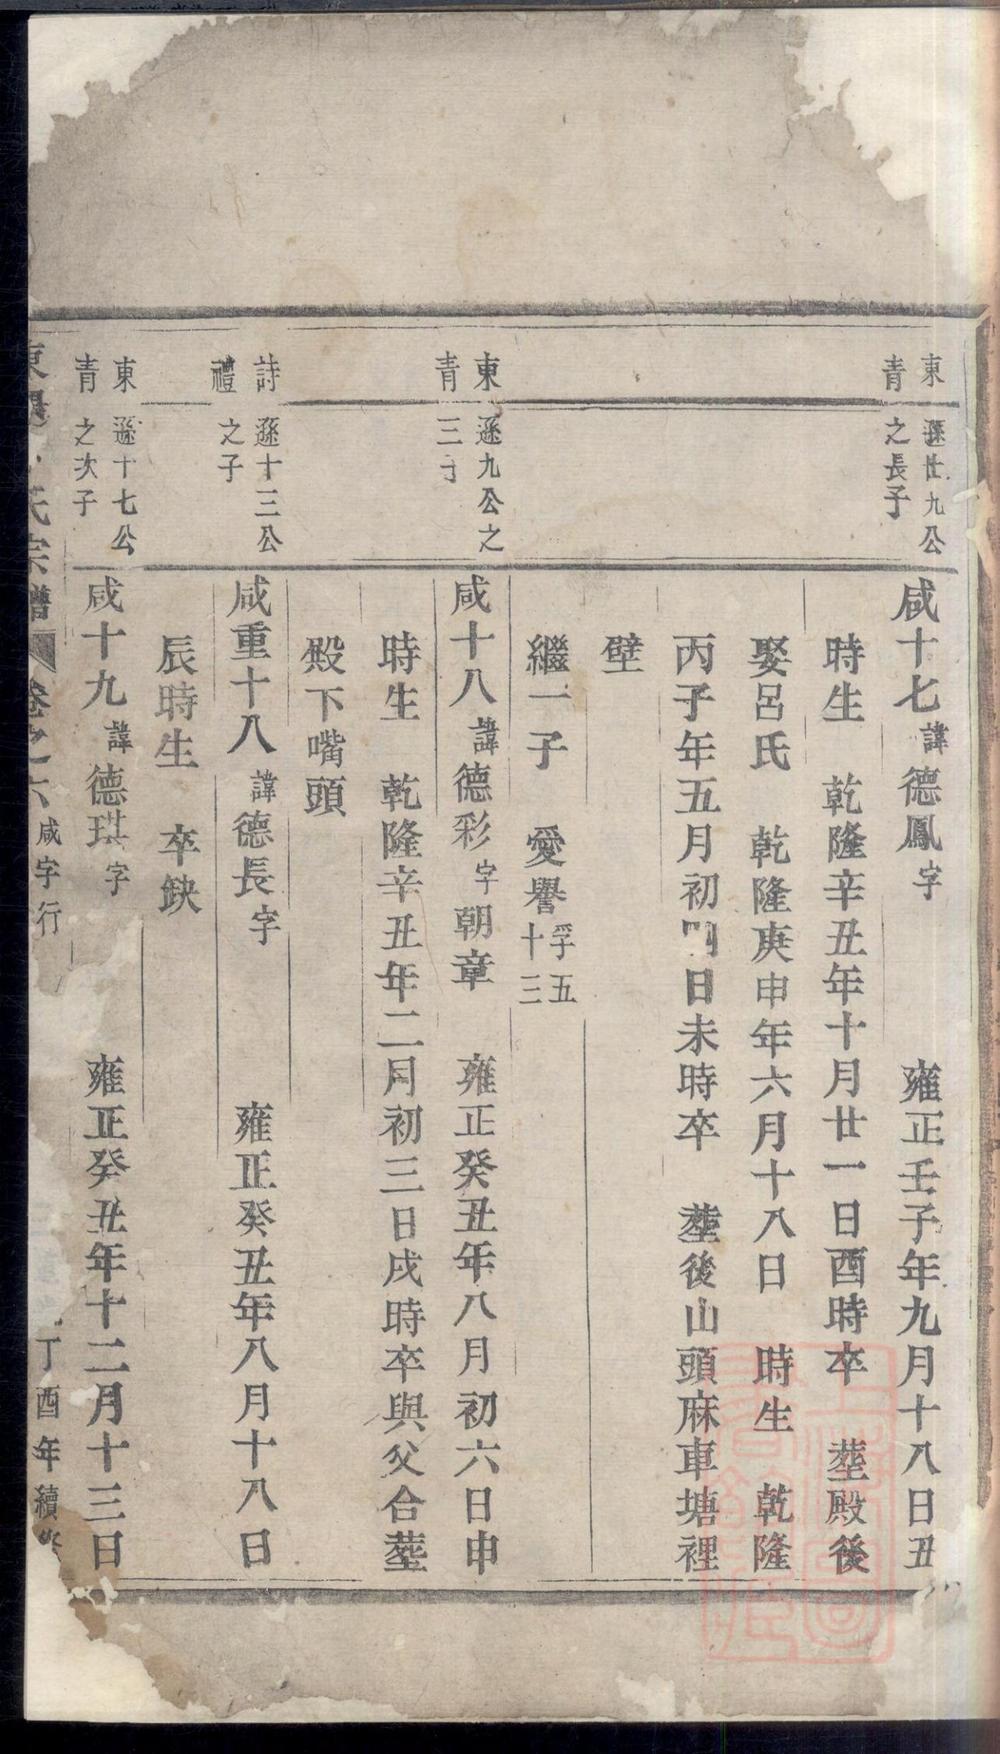 東青
遜廿九公
之長子
咸十七諱德鳳字 雍正壬子年九月十八日丑
時生 乾隆辛丑年十月廿一日酉時卒 塟殿後
娶呂氏 乾隆庚申年六月十八日 時生 乾隆
丙子年五月初四日未時卒 塟後山頭麻車塘裡
壁
繼一子 愛譽孚五十三
東青
遜九公之
三子
咸十八諱德彩字朝章 雍正癸丑年八月初六日申
時生 乾隆辛丑年二月初三日戌時卒與父合塟
殿下嘴頭
詩禮
遜十三公
之子
咸重十八諱德長字 雍正癸丑年八月十八日
辰時生 卒缺
東青
遜十七公
之次子
咸十九諱德琪字 雍正癸丑年十二月十三日
東 氏宗譜 卷之六 咸字行 丁酉年續修